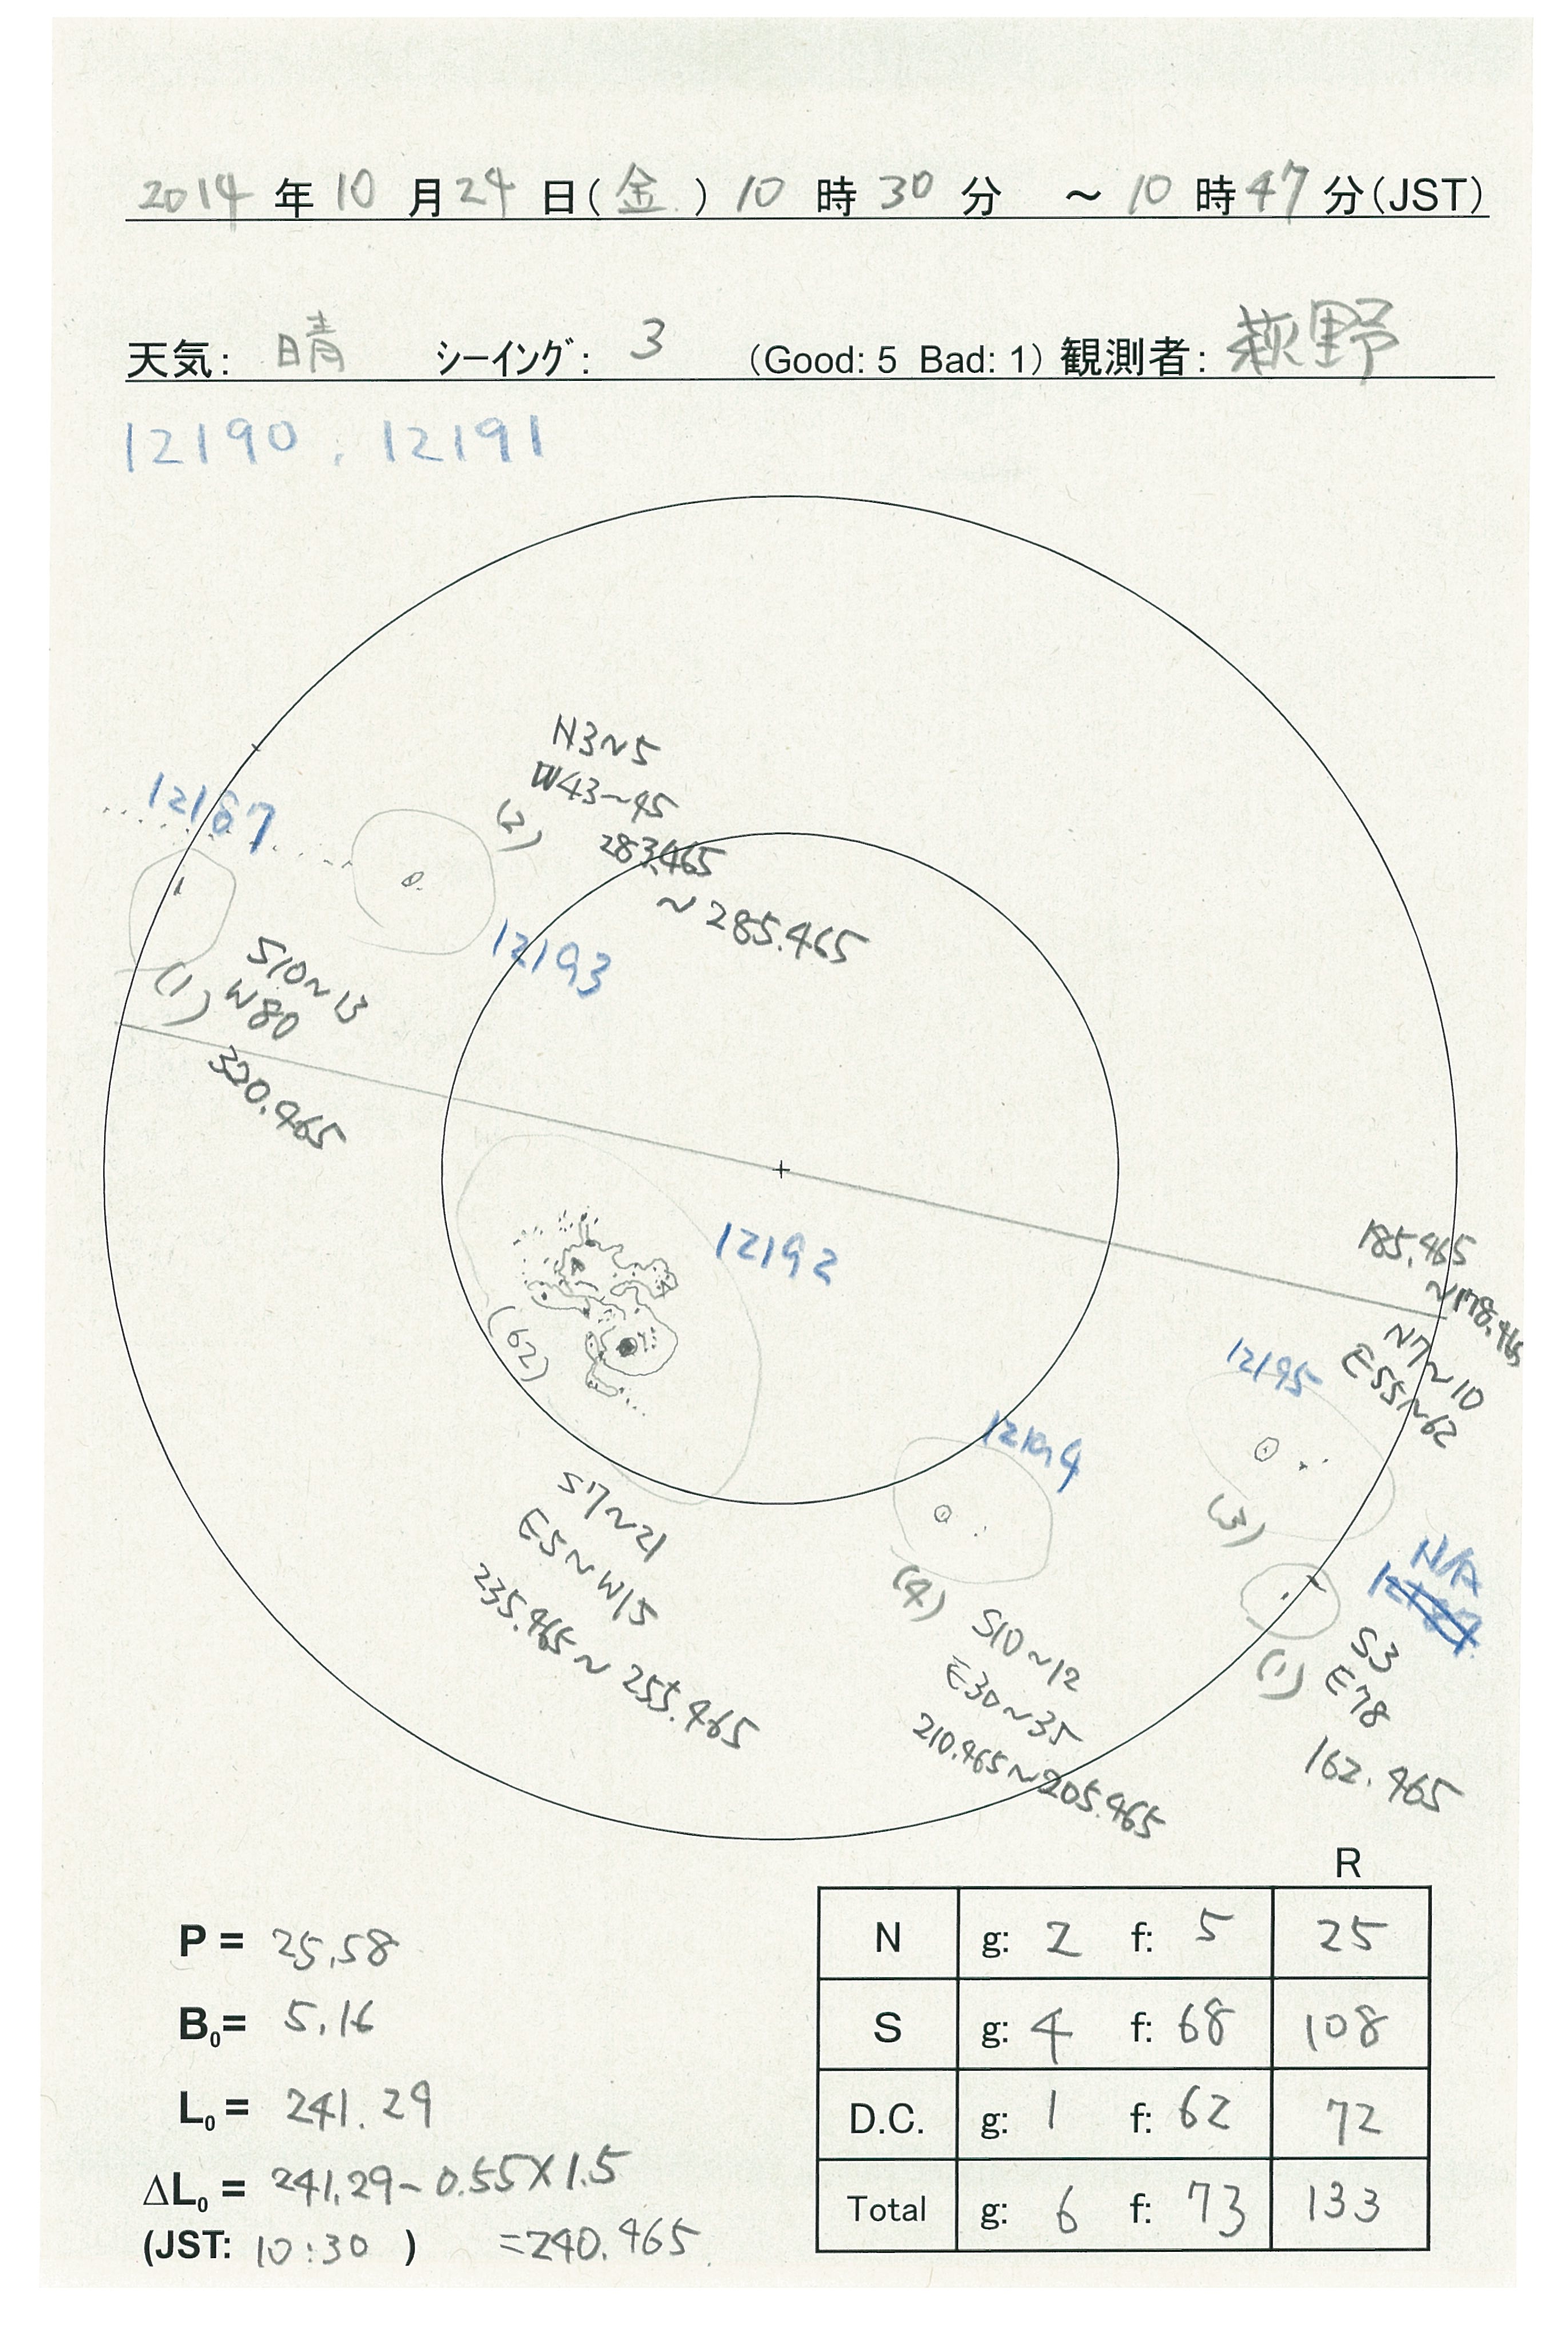 2014 年 10 月 24 日(金) 10 時 30 分 ～ 10 時 47 分(JST)
天気: 晴 シーイング: 3 (Good: 5 Bad: 1) 観測者: 萩野
12190, 12191
N3~5
W43~45
(2)
283.465
~285.465
12167
12193
S10~13
(1) W80
320.465
12192
(62)
185.465
~178.465
N7~10
E55~62
12195
(3)
12194
S7~21
E5~W15
235.465~255.465
(4)
S10~12
E30~35
210.465~205.465
N/A
S3
(1) E78
162.465
R
P = 25.58
N g: 2 f: 5 25
B₀= 5.16
S g: 4 f: 68 108
L₀ = 241.29
D.C. g: 1 f: 62 72
ΔL₀ = 241.29-0.55×1.5
Total g: 6 f: 73 133
(JST: 10:30 ) =240.465